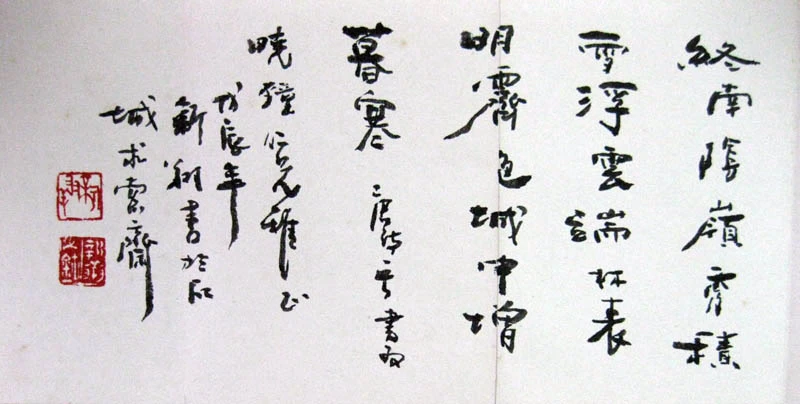 終南陰嶺秀積
雪浮雲端林表
明霽色城中增
暮寒 唐詩 書
曉鐘仁兄雅正
戊辰年
書於江
城求索齋